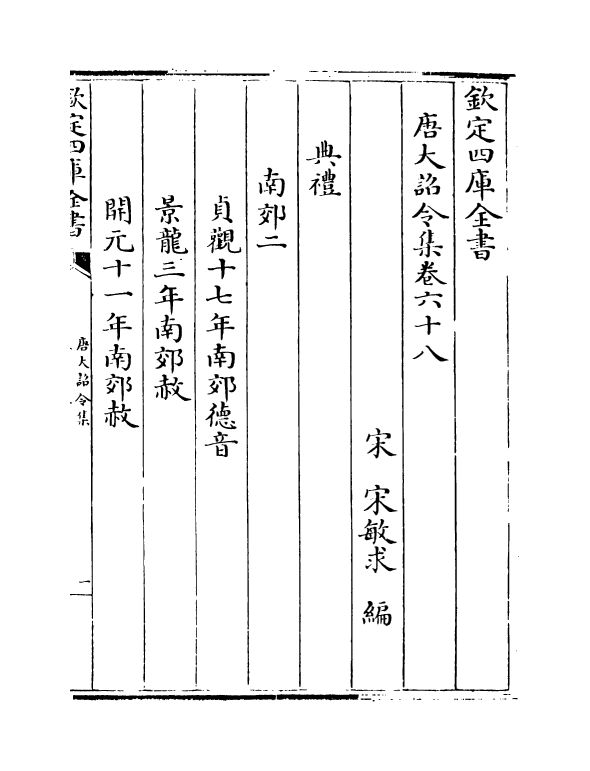 欽定四庫全書
唐大詔令集卷六十八
宋 宋敏求 編
典禮
南郊二
貞觀十七年南郊德音
景龍三年南郊赦
開元十一年南郊赦
欽定四庫全書
唐大詔令集
一